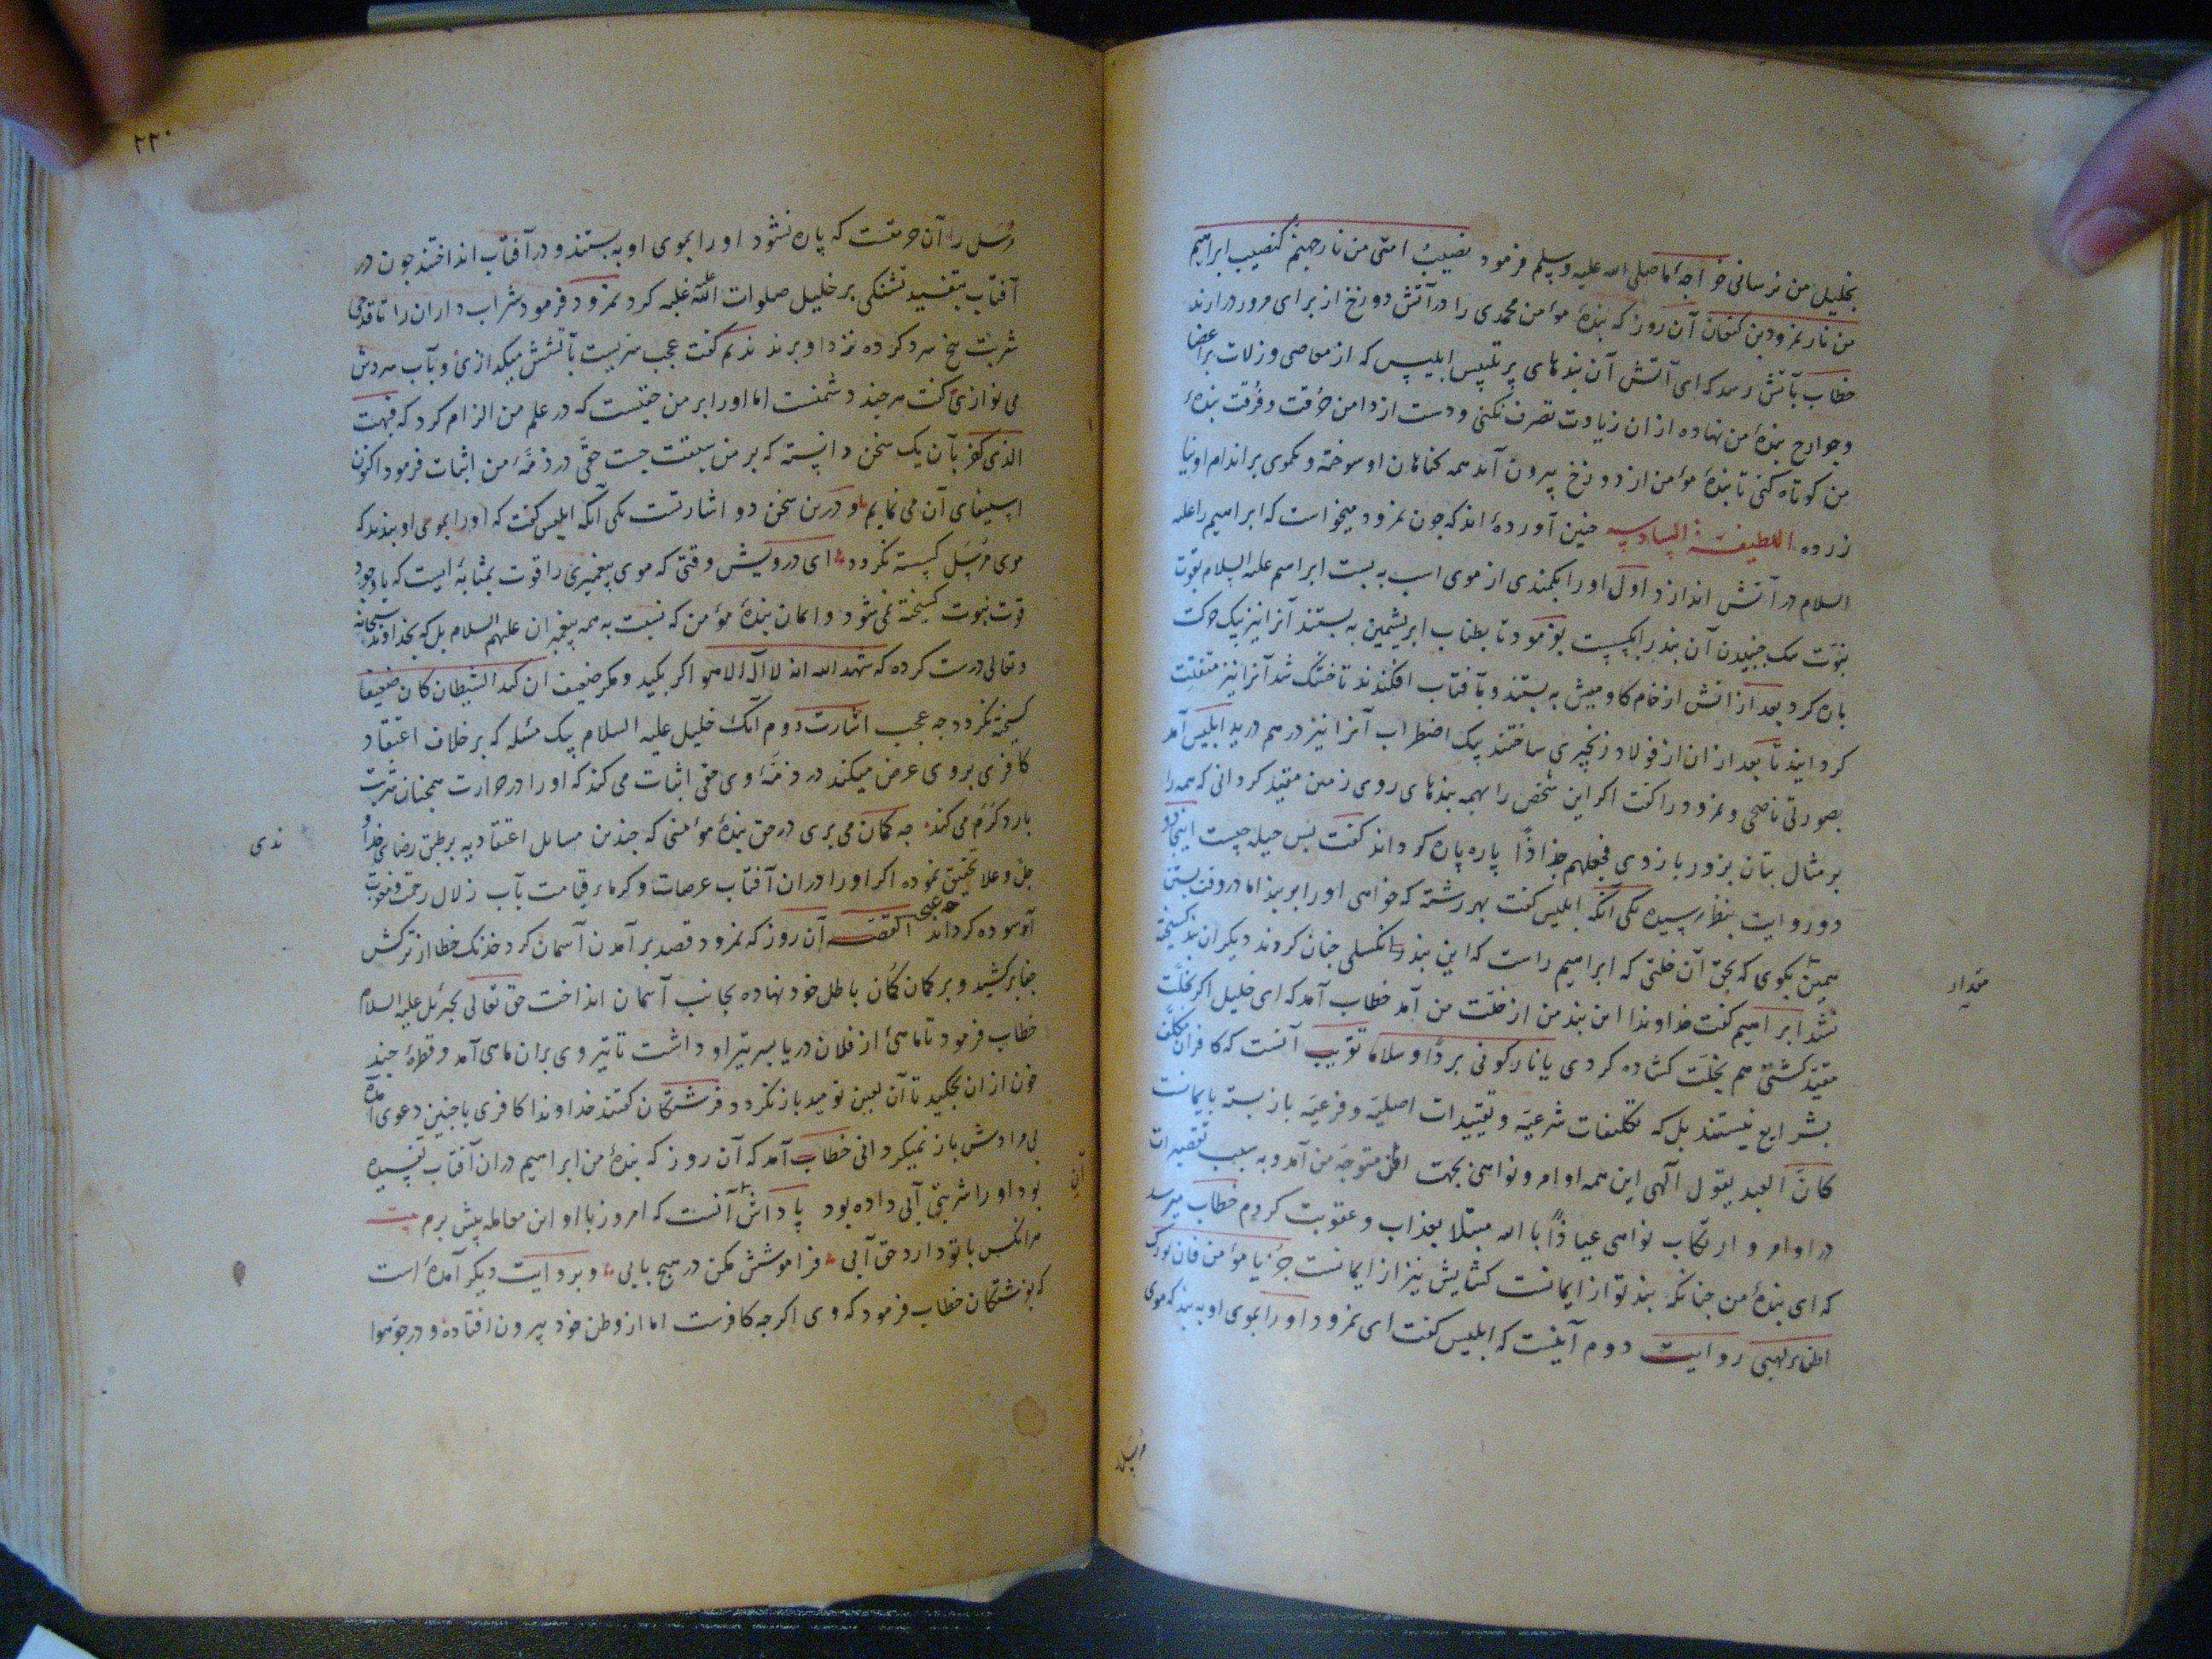 بخلیل من نرسانی خواجهٔ ما صلی الله علیه وسلم فرمود نصیبُ امتی من نار جهنم کنصیب ابراهیم
من نار نمرود بن کنعان آن روز که بندهٔ مؤمن محمدی را در آتش دوزخ از برای مرور درارند
خطاب بآتش رسد که ای آتش آن بندهای پر تلبیس ابلیس که از معاصی و زلات بر اعضا
و جوارح بندهٔ من نهاده از ان زیادت تصرف نکنی و دست از دامن حرقت و فرقت بندهٔ
من کوتاه کنی تا بندهٔ مؤمن از دوزخ بیرون آید همه کناهان او سوخته و یکموی بر اندام او نیا
زرده اللطیفة السادسه چنین آورده اند که چون نمرود میخواست که ابراهیم را علیه
السلام در آتش اندازد اول او را بکمندی از موی اسب به بست ابراهیم علیه السلام بقوت
نبوت یک جنبیدن آن بند را بکسست بفرمود تا بطناب ابریشمین به بستند آنرا نیز بیک حرکت
پاره کرد بعد از انش از خام کاومیش به بستند و بآفتاب افکندند تا خشک شد آنرا نیز متفتت
کردانید تا بعد از ان از فولاد زنجیری ساختند بیک اضطراب آنرا نیز در هم درید ابلیس آمد
بصورتی ناصحی و نمرود را کفت اکر این شخص را بهمه بندهای روی زمین مقید کردانی که همه را
بر مثال بتان بزور بازوی فجعلهم جذاذًا پاره پاره کرداند کفت بس حیله چیست اینجا
دو روایت بنظر رسیده یکی آنکه ابلیس کفت بهر رشته که خواهی او را بر بند اما در وقت بستن
همین بکوی که بحق آن خلتی که ابراهیم راست که این بند را نکسلی چنان کردند دیکر آن بند کسیخته
نشد ابراهیم کفت خداوندا این بند من از خلت من آمد خطاب آمد که ای خلیل اکر بخلت
مقید کشتی هم بخلت کشاده کردی یا نار کونی بردًا وسلاما تقریب آنست که کافران مکلف
بشرایع نیستند بل که تکلیفات شرعیه و تقییدات اصلیه و فرعیه باز بسته بایمانست
کانّ العبد یقول آلهی این همه اوامر و نواهی بجهت ایمان متوجه من آمد و به سبب تقصیرات
در اوامر و ارتکاب نواهی عیاذًا بالله مبتلا بعذاب و عقوبت کردم خطاب میرسد
که ای بندهٔ من چنانکه بند تو از ایمانست کشایش نیز از ایمانست جُز یا مؤمن فان نورک
اطفی لهبی روایت دوم آنست که ابلیس کفت ای نمرود او را بموی او به بند که موی
مقدار
مرسل
۲۲۰
مرسل را آن حرمتست که پاره نشود او را بموی او به بستند و در آفتاب انداختند چون در
آفتاب بتفسید تشنکی بر خلیل صلوات الله علیه غلبه کرد نمرود فرمود شراب داران را تا قدحی
شربت یخ سرد کرده نزد او برند ندیم کفت عجب سریست بآتشش میکدازی و بآب سردش
می نوازی کفت هر چند دشمنست اما او را بر من حقیست که در علم من الزام کرد که فبهت
الذی کفر بآن یک سخن دانسته که بر من سبقت جست حقّی در ذمّهٔ من اثبات فرمود اکنون
استیفای آن می نمایم و درین سخن دو اشارتست یکی آنکه ابلیس کفت که او را بموی او ببندند که
موی مرسل کسسته نکردد ای درویش وقتی که موی پیغمبری را قوت بمثابهٔ ایست که با وجود
قوت نبوت کسیخته نمی شود و ایمان بندهٔ مؤمن که نسبت به همه پیغمبران علیهم السلام بل که بخداوند سبحانه
و تعالی درست کرده که شهد الله انه لا اله الا هو اکر بکید و مکر ضعیف ان کید الشیطان کان ضعیفا
کسیخته نکردد چه عجب اشارت دوم آنک خلیل علیه السلام بیک مسئله که بر خلاف اعتقاد
کافری بروی عرض میکند در ذمّهٔ وی حقی اثبات می کند که او را در حرارت همچنان شربت
بارد کرم می کند چه کمان می بری در حق بندهٔ مؤمنی که چندین مسایل اعتقادیه بر طبق رضای خدا
جلّ و علا تحقیق نموده اکر او را دران آفتاب عرصات و کرماء قیامت بآب زلال رحمت و
آسوده کرداند چه عجب القصه آن روز که نمرود قصد بر آمدن آسمان کرد خدنک خطا از ترکش
جفا برکشید و بر کمان کمان باطل خود نهاده بجانب آسمان انداخت حق تعالی بجبرئیل علیه السلام
خطاب فرمود تا ماهئ از فلان دریا بسر تیر او داشت تا تیر وی بران ماهی آمد و قطرهٔ چند
خون ازان بچکید تا آن لعین نومید باز نکردد فرشتکان کفتند خداوندا کافری با چنین دعوی آمده
بی مرادش باز نمیکردانی خطاب آمد که آن روز که بندهٔ من ابراهیم دران آفتاب تفسیده
بود او را شربتی آبی داده بود پاداش آنست که امروز با او این معامله پیش برم بیت
هر انکس با تو دارد حق آبی فراموشش مکن در هیچ بابی و بروایت دیکر آمده است
که بفرشتکان خطاب فرمود که وی اکرچه کافرست اما از وطن خود بیرون افتاده و در جو هوا
ندی
آن